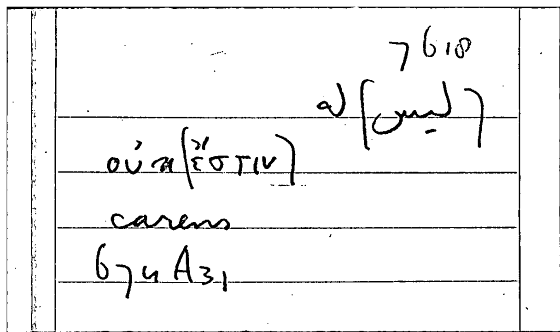 7618
لا [ليس]
οὐκ (ἔστιν)
carens
674 A31